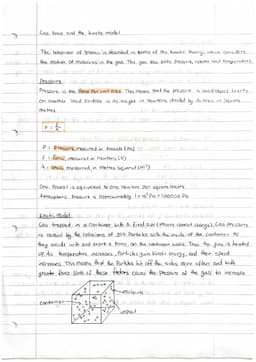 Gas laws and the kinetic model
The behaviour of gases is described in terms of the kinetic theory, which considers
the motion of molecules in the gas. The gas law links pressure, volume and temperature.
Pressure
Pressure is the force per unit area. This means that the pressure a solid object exerts
on another solid surface is its weight in newtons divided by its area in square
metres.
P = F/A
P = pressure, measured in pascals (Pa)
F = force, measured in newtons (N)
A = area, measured in metres squared (m²)
One Pascal is equivalent to one newton per square metre.
Atmospheric pressure is approximately 1×10⁵ Pa = 100000 Pa
Kinetic Model
Gas trapped in a container with a fixed size (volume cannot change). Gas pressure
is caused by the collisions of gas particles with the inside of the container as
they collide with and exert a force on the container walls. Then the gas is heated
up. As temperature increases, particles gain kinetic energy, and their speed
increases. This means that the particles hit off the sides more often and with
greater force. Both of these factors cause the pressure of the gas to increase
molecule
container
impact